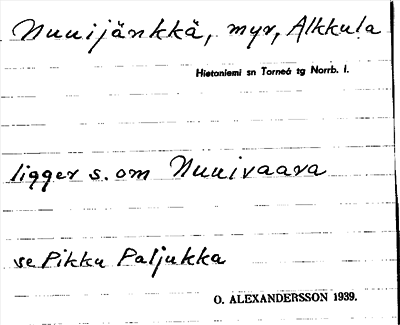 Nuuijänkkä, myr, Alkkula
Hietaniemi sn Torneå tg Norrb. l.
ligger s. om Nuuivaara
se Pikku Paljukka
O. ALEXANDERSSON 1939.